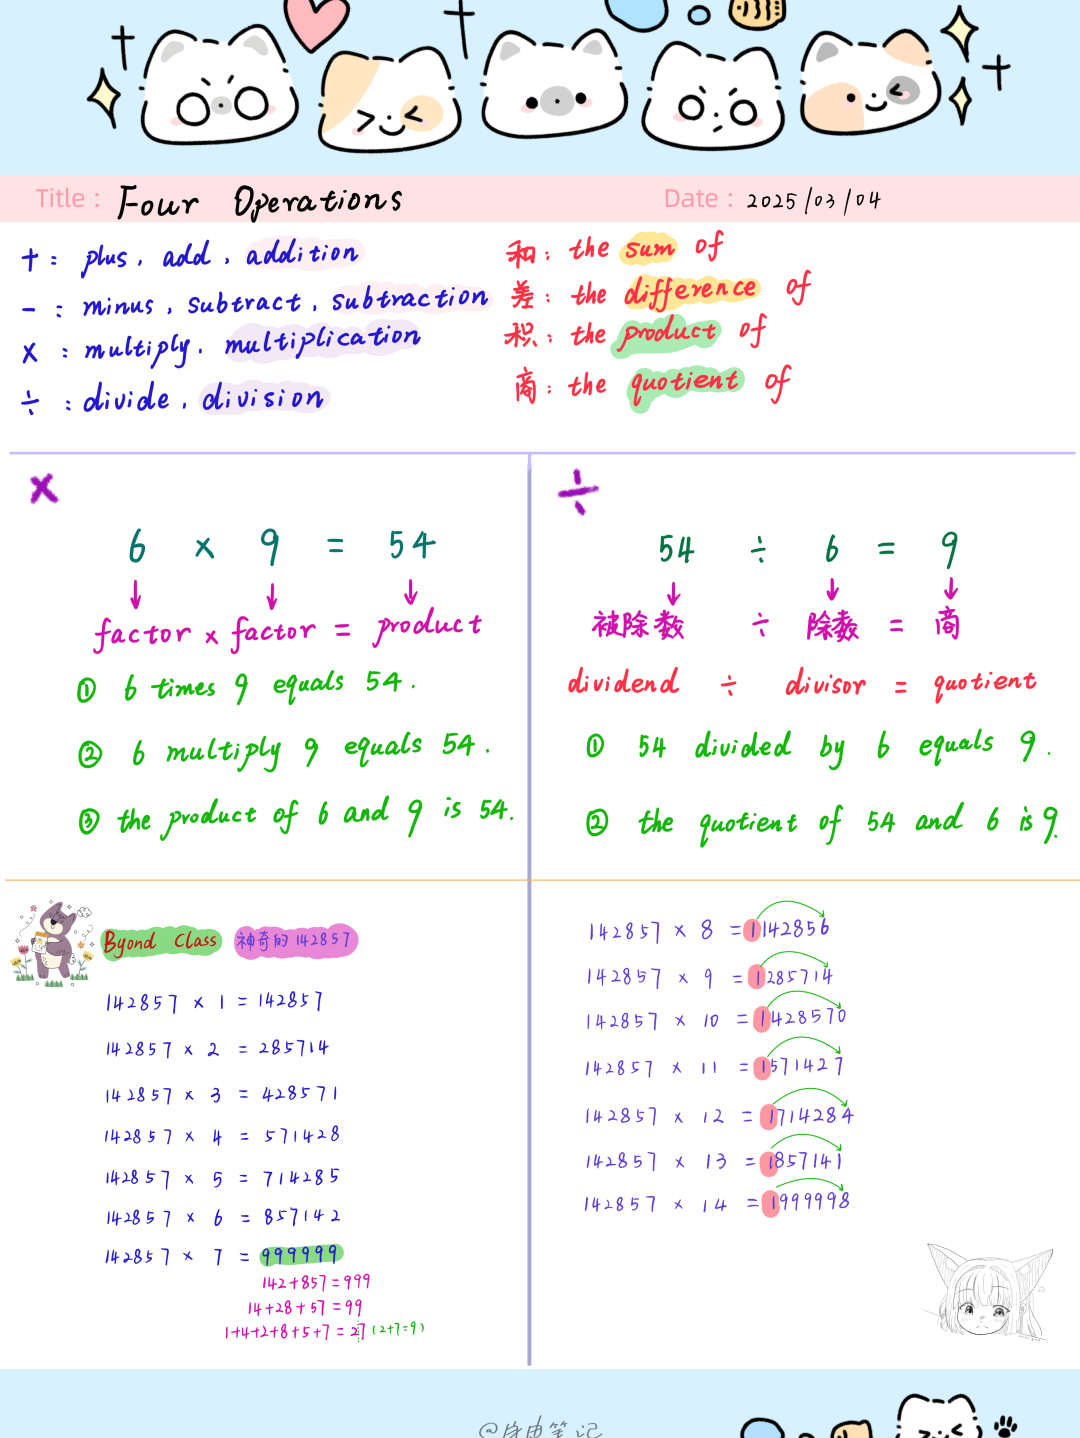 Title : Four Operations
Date : 2025/03/04
+ : plus, add, addition
- : minus, subtract, subtraction
× : multiply, multiplication
÷ : divide, division
和: the sum of
差: the difference of
积: the product of
商: the quotient of
×
6 × 9 = 54
factor × factor = product
① 6 times 9 equals 54.
② 6 multiply 9 equals 54.
③ the product of 6 and 9 is 54.
÷
54 ÷ 6 = 9
被除数 ÷ 除数 = 商
dividend ÷ divisor = quotient
① 54 divided by 6 equals 9.
② the quotient of 54 and 6 is 9.
Byond Class 神奇的 142857
142857 × 1 = 142857
142857 × 2 = 285714
142857 × 3 = 428571
142857 × 4 = 571428
142857 × 5 = 714285
142857 × 6 = 857142
142857 × 7 = 999999
142+857=999
14+28+57=99
1+4+2+8+5+7=27 (2+7=9)
142857 × 8 = 1142856
142857 × 9 = 1285714
142857 × 10 = 1428570
142857 × 11 = 1571427
142857 × 12 = 1714284
142857 × 13 = 1857141
142857 × 14 = 1999998
@自由笔记